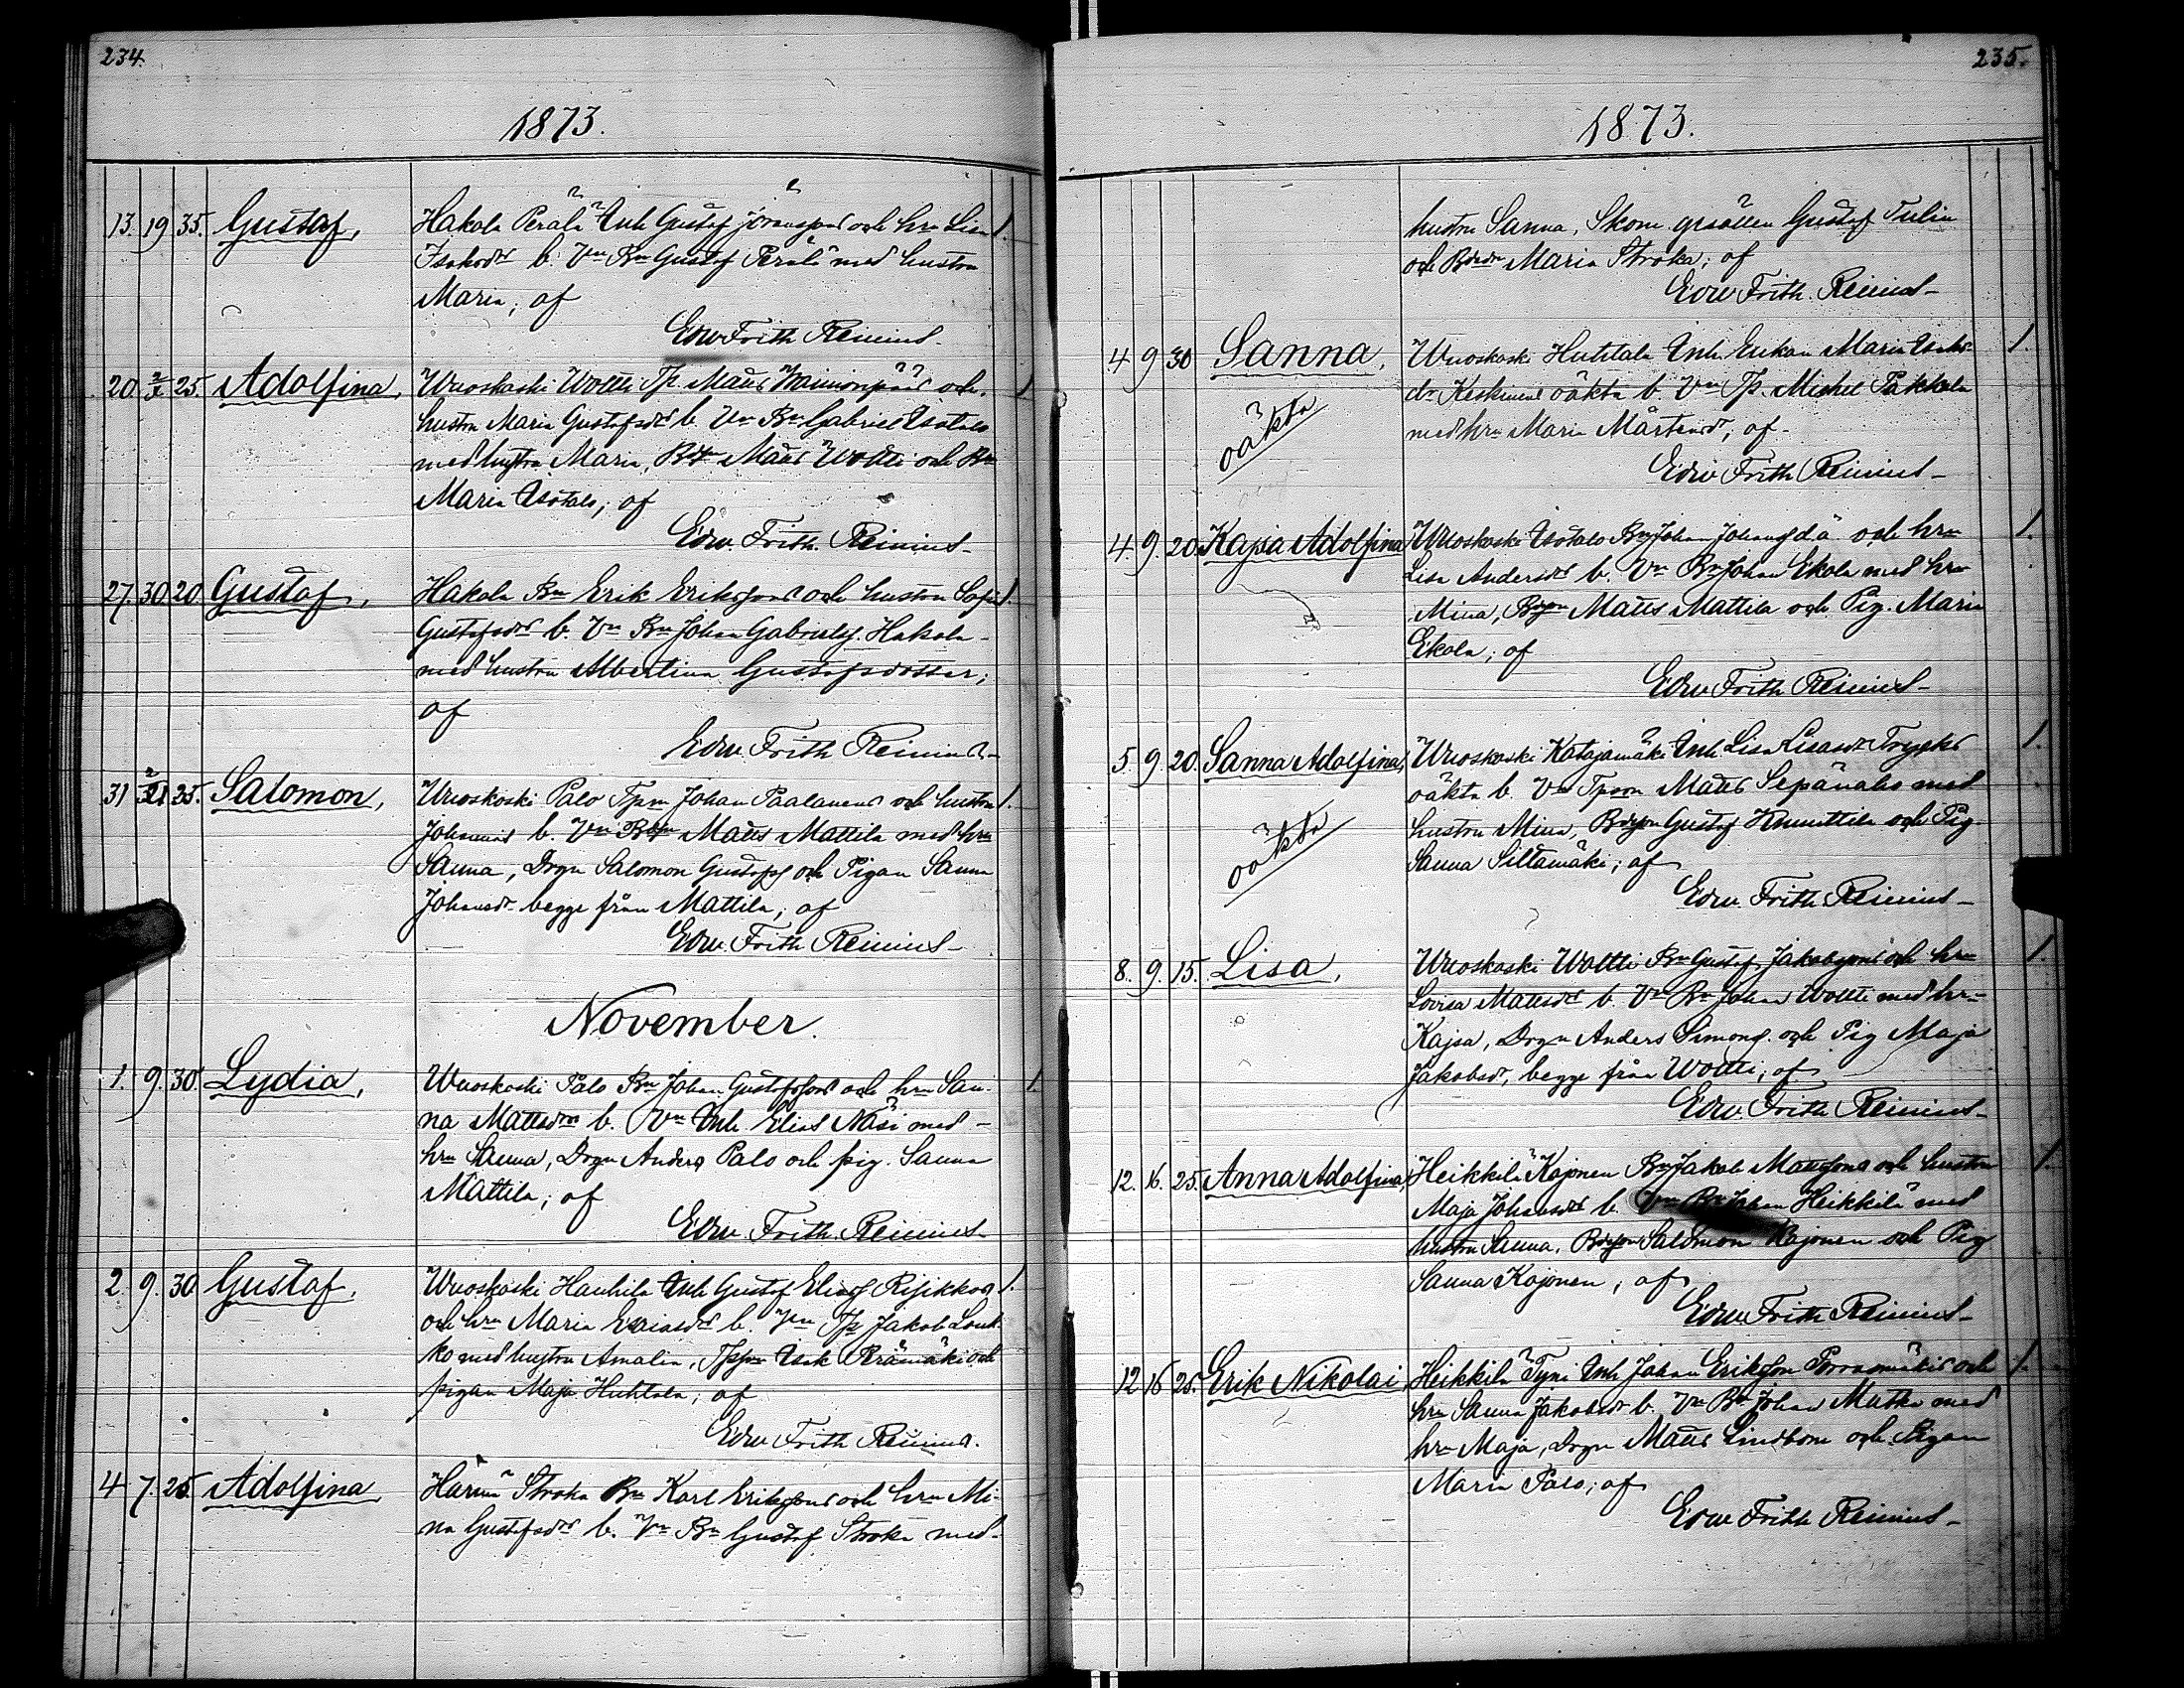 234.
1873.
13. 19 35. Gustaf, Hakola Perälä Inh Gustaf Göransson och hru Lisa 1.
Isaksdr b. Vn Bn Gustaf Perälä med hustru
Maria; af
Edw Frith Reinius-
20. 2/11 25. Adolfina, Wuoskoski Woltti Tp. Matts och 1
hustru Maria Gustafsdr b. Vn Bn Gabriel Isotalo
med hustru Maria, Bdr Matts Woltti och Bn
Maria Isotalo; af
Edw. Frith. Reinius-
27. 30. 20. Gustaf, Hakola Bn Erik Eriksson och hustru Sofia 1.
Gustafsdr b. Vn Bn Johan Gabrielss. Hakola
med hustru Albertina Gustafsdotter;
af
Edw. Frith Reinius-
31 25. Salomon, Wuoskoski Palo Tpn Johan Paalanen och hustru 1.
b. Vn Matts Mattila med hru
Sanna, Drgn Salomon Gustafss och Pigan Sanna
Johansdr begge från Mattila; af
Edw. Frith Reinius-
November.
1. 9. 30. Lydia, Wuoskoski Palo Bn Johan Gustafsson och hru San- 1.
na Mattsdr b. Vn Inh. Elias Näsi med -
hru Sanna, Drgn Anders Palo och pig. Sanna
Mattila; af
Edw. Frith. Reinius-
2. 9. 30 Gustaf, Wuoskoski Hauhila Inh Gustaf Eliass Risikko 1.
och hru Maria b. Vn Tp Jakob Louk-
ko med hustru Amalia, Isak och
pigan Maja Huhtala; af
Edw Frith Reinius.
4 7. 25. Adolfina Härmä Stroka Bn Karl Eriksson och hru Mi-
na Gustafsdr b. Vn Bn Gustaf Stroka med-
235.
1873.
hustru Sanna, Skom. gesällen Gustaf Tulin
och Bdr Maria Stroka; af
Edw Frith. Reinius-
4 9 30 Sanna, Wuoskoski Huhtala Inh Enkan Maria Isaks- 1.
dr Keskinen oäkta b. Vn Tp. Michel Pakkala
oäkta med hru Maria Mårtensdr; af-
Edw Frith Reinius-
4. 9. 20. Kajsa Adolfina Wuoskoski Isotalo Bn Johan Johans d.ä. och hru 1.
Lisa Andersdr b. Vn Bn Johan Ekola med hru
Mina, Bdrsn Matts Mattila och Pig. Maria
Ekola; af
Edw Frith Reinius-
5. 9. 20. Sanna Adolfina, Wuoskoski Katajamäki Inh Lisa Lisasdr 1.
oäkta b. Vn Matts Sepänaho med
oäkta hustru Mina, Bdrsn Gustaf Knuuttila och Pig.
Sanna Siltamäki; af
Edw. Frith Reinius-
8. 9. 15. Lisa, Wuoskoski Woltti Bn Gustaf Jakobsson och hru 1.
Lovisa Mattsdr b. Vn Bn Johan Woltti med hru
Kajsa, Drgn Anders Simons. och Pig Maja
Jakobsdr, begge från Woltti; af
Edw. Frith Reinius-
12. 16. 25. Anna Adolfina, Heikkilä Kojonen Bn Jakob Mattsson och hustru 1.
Maja Johansdr b. Vn Bn Johan Heikkilä med
hustru Sanna, Bdrsn Salomon Kojonen och Pig
Sanna Kojonen; af
Edw Frith Reinius-
12 16 25. Erik Nikolai Heikkilä Tyni Inh Johan Eriksson och 1.
hru Sanna Jakobsdr b. Vn Bn Johan Matka med
hru Maja, Drgn Matts Lindbom och Pigan
Maria Palo; af
Edw Frith Reinius-